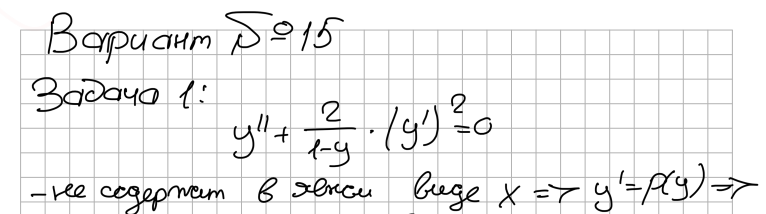 Вариант №15
Задача 1:
y'' + 2/(1-y) · (y')² = 0
- не содержит в явном виде x => y' = p(y) =>